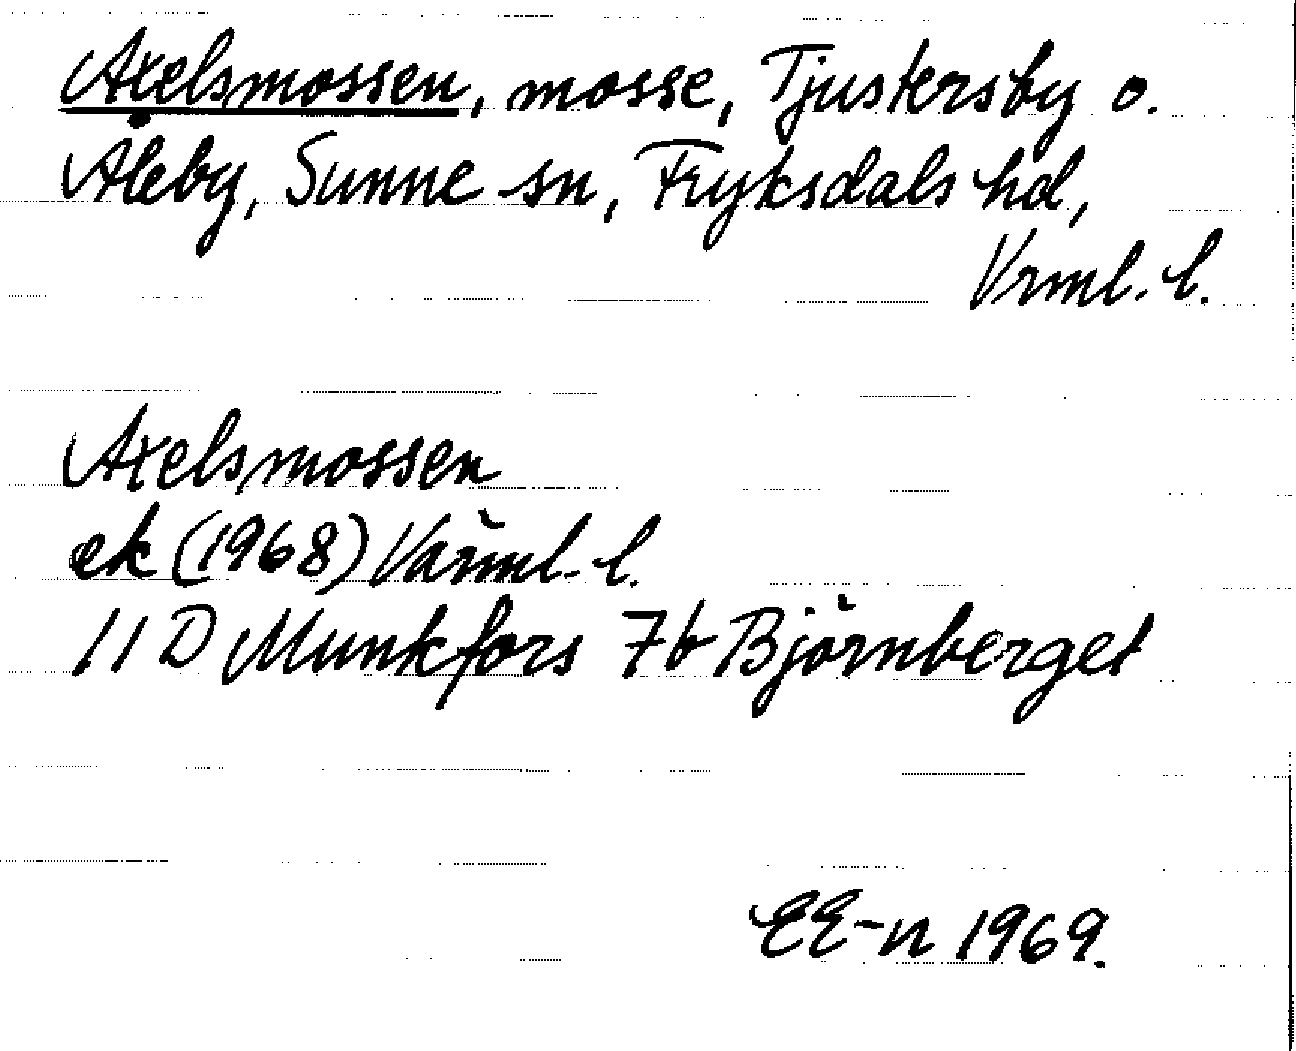 Axelsmossen, mosse, Tjustersby o.
Åleby, Sunne sn, Fryksdals hd,
Vrml. l.
Axelsmossen
ek (1968) Värml. l.
11 D Munkfors 7b Björnberget
EE-n 1969.